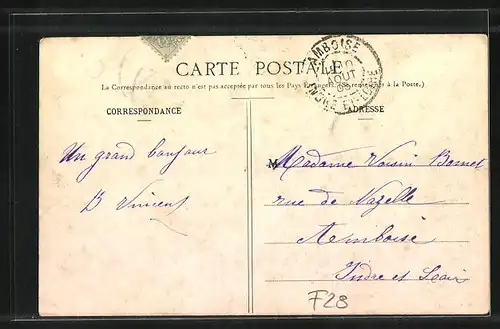 AMBOISE
AOUT
INDRE-ET-LOIRE
CARTE POSTALE
(La Correspondance au recto n'est pas acceptée par tous les Pays Étrangers. Se renseigner à la Poste.)
CORRESPONDANCE
ADRESSE
Un grand bonjour
B Vincent
Madame Voisin Bonnet
rue de Nazelle
Amboise
Indre et Loire
F28